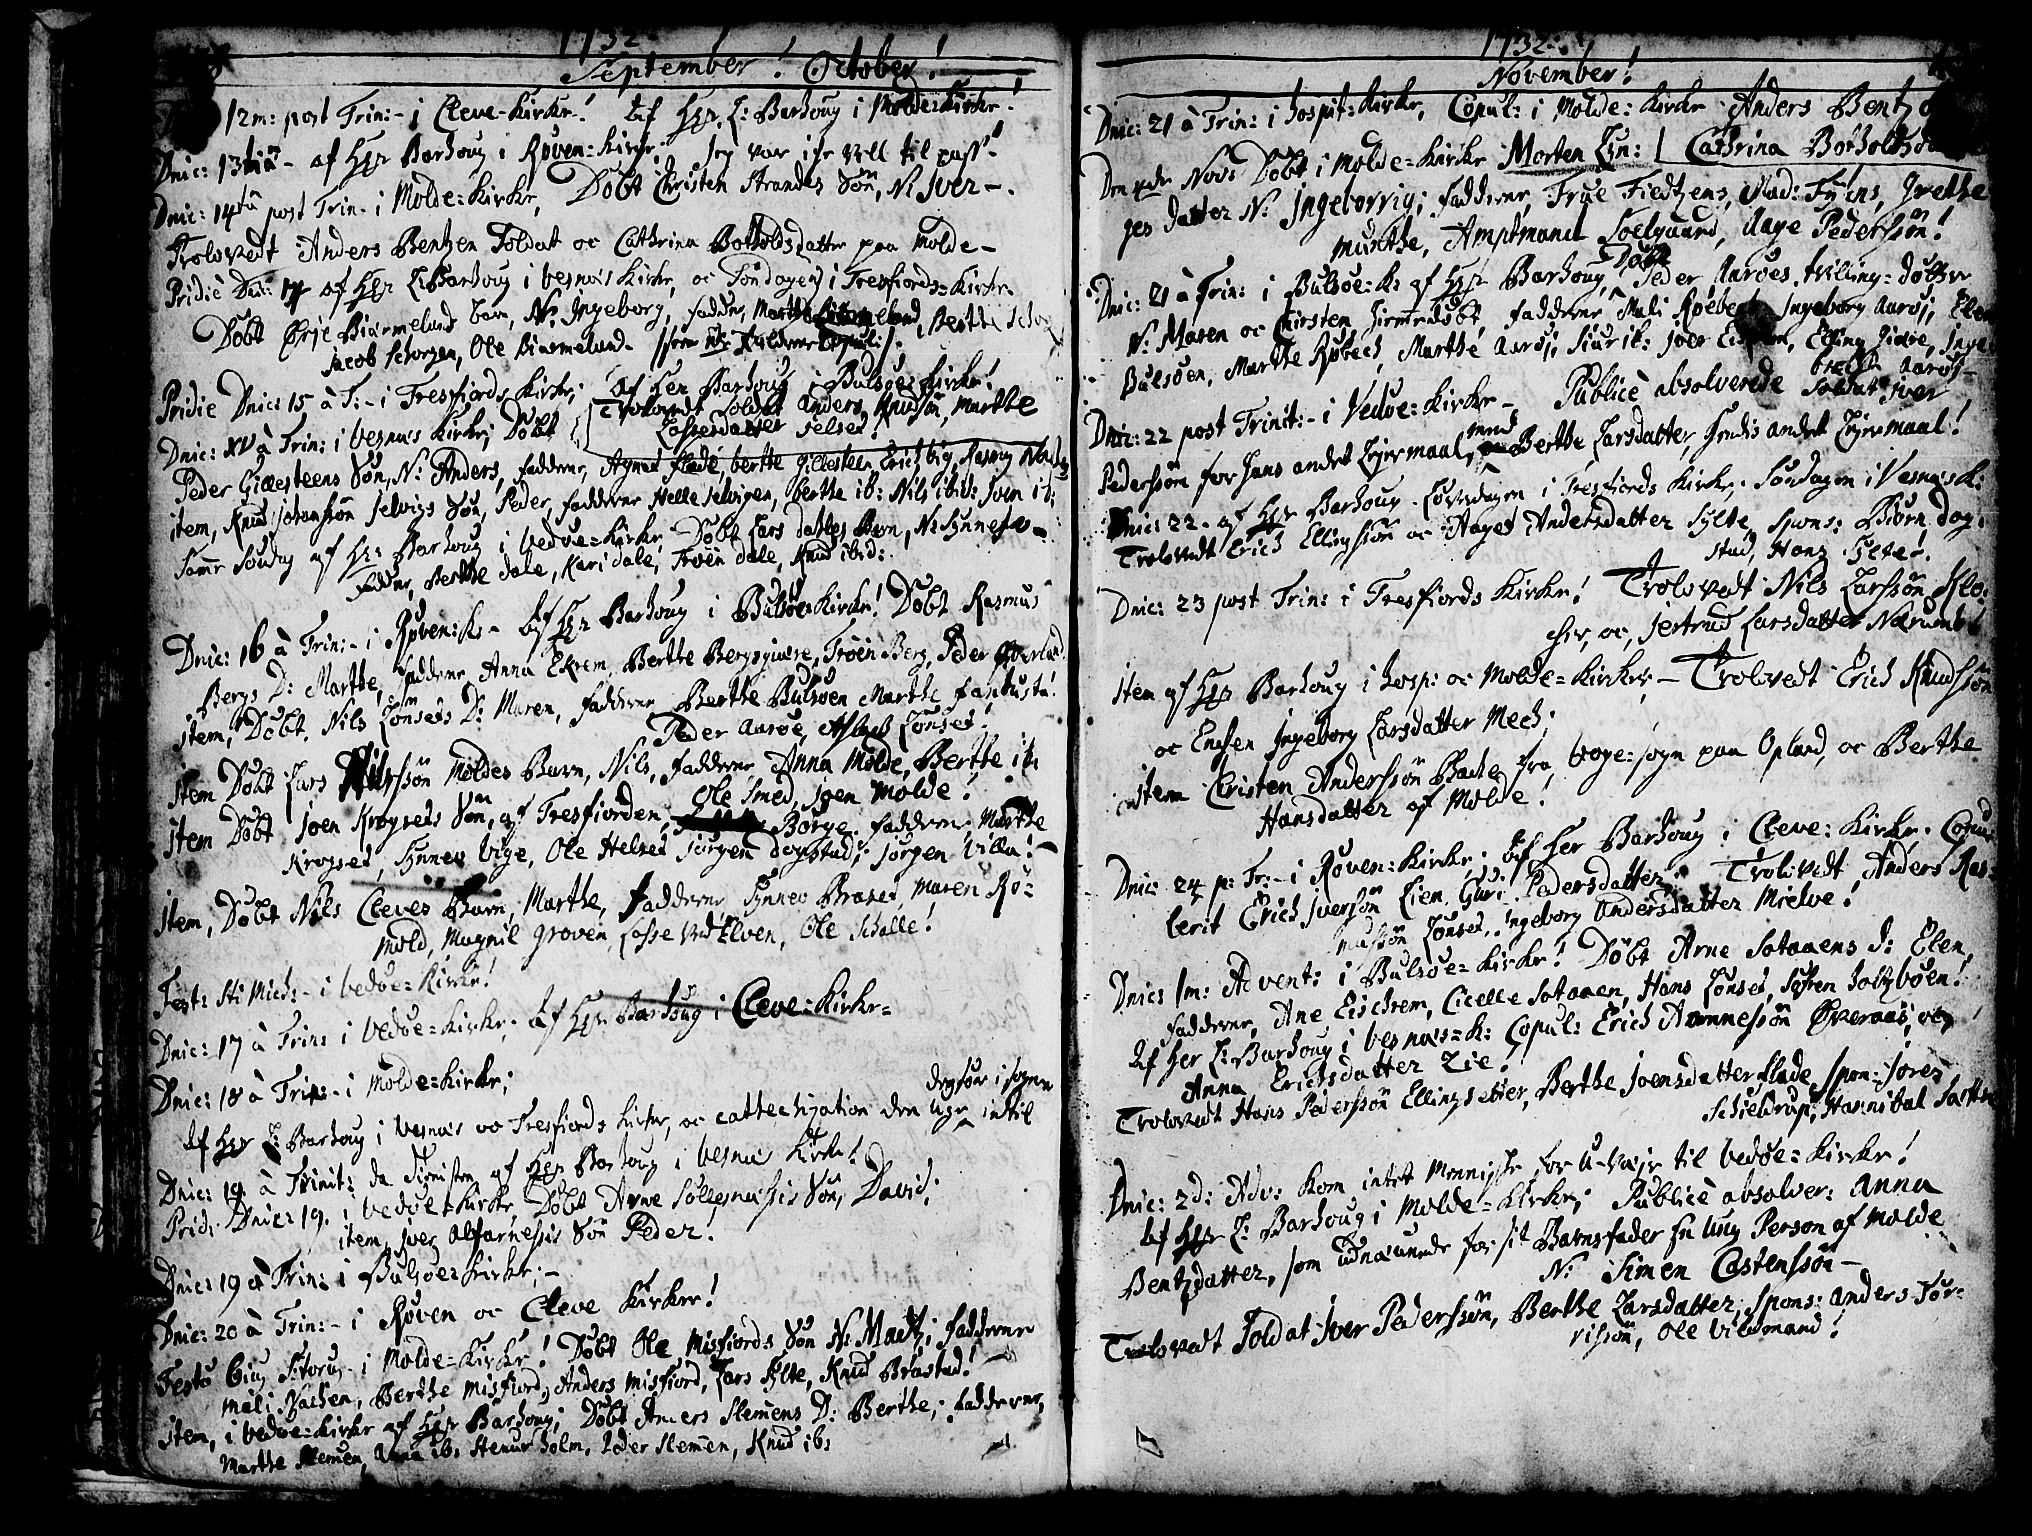 1732
September! October!
12m: post Trin:- i Cleve-Kirke! Af Hgr. L: Barhoug i Molde=Kirke!
Dnic: 13tia - af Hgr Barhoug i Røven=Kirke; Jeg var icke vell til pass!
Dnic: 14tu post Trin- i Molde=Kirke, Döbt Christen Strandes Sön, N: Iver-.
Trolovedt Anders Bentzen Soldat oc Cathrina Botholdsdatter paa Molde-
Pridie Dnic: 14 af Hgr L: Barhoug i Vesnæs Kirke, oc Söndagen i Tresfiords=Kirke
Döbt Ørje Biermelands barn, N: Ingeborg, faddr, Marthe Biermeland, Berthe
Jacob Schorgen, Ole Biermeland-
Pridie Dnic: 15 à T:- i Tresfiords Kirke; Af Her Barhoug i Bulsøe=Kirke!
Trolovedt Soldat Anders Knudsön, Marthe
Dnic: XV à Trin: i Vesnæs Kirke; Döbt Lassesdatter Helset!
Peder Gillesteens Sön, N: Anders, faddrne, Agned flade, berthe Gillesteen, Erich Vig, Rasmus
item, Knud Johanssön Helvigs Sön, Peder, fadderne Helle Helvigen, berthe ib: Nils ibid: Sven ib:
Samme Söndag af Hgr Barhoug i Vedøe=Kirke Döbt Lars dahles Barn, N: Synneve-
Faddrne, Berthe dale, Kari dale, Troën dale, Knud ibid:
Dnic: 16 à Trin:- i Røven:K:- Af Hgr Barhoug i Bulsøe=Kirke! Döbt Rasmus
Bergs D: Marthe, Fadderne Anna Ekrem, Berthe Bergsgiære, Troën Berg, Peder
item, Döbt, Nils Lönsets D: Maren, fadderne Berthe Bulsøen Marthe
Peder Aarøe, Lönset!
item Döbt Lars Nilssön Moldes Barn, Nils, fadderne, Anna Molde, Berthe ib:
Ole Smed, Joen Molde!
item Döbt Joen Krogsets Sön, af Tresfiorden, Börge. fadderne, Marthe
Krogset, Synnev Vige, Ole Helset Jörgen dogstad, Jörgen Villa!
item, Döbt Nils Cleves Barn, Marthe, Fadderne Synnev Braset, Maren Rö=
Mold, Magnil Groven, Lasse ved Elven, Ole Schalle!
Fest: Sti Mich:- i Vedøe=Kirke!
Dnic: 17 à Trin: i Vedøe=Kirke; Af Hgr Barhoug i Cleve=Kirke=
Dnic: 18 à Trin:- i Molde=Kirke;
Af Hgr L: Barhoug i Vesnæs oc Tresfiords Kirke, oc cattechization den uge indtil
Dnic: 19 à Trinit: da Tienisten af Hgr Barhoug i Vesnæs Kirke!
Prid: Dnic: 19. i Vedøe=Kirke, Döbt Arne Söllesnæssis Sön, David;
item, Iver Alfarnessis Sön Peder!
Dnic: 19 à Trin: i Bulsøe=Kirke;-
Dnic: 20 à Trin:- i Røven oc Cleve Kirker!
Festo i Molde=Kirke! Döbt Ole Misfiords Sön N: Madtz; Fadderne
Mali Nachen, Berthe Misfiord, Anders Misfiord, Lars Sylte, Knud Bråstad!
item, i Vedøe=Kirke af Hgr Barhoug; Döbt Anders Slemens D: Berthe; Fadderne,
Marthe Slemen, Anna ib: Holm, Peder Slemen, Knud ib:
1732:
November!
Dnic: 21 à Trin: i Hospit: Kirke, Copul: i Molde: Kirke Anders Bentz
Cathrina Botholds
Den 4de Nov: Döbt i Molde=Kirke Morten
ges datter N: Ingeborrig; fadderne, Frue Fiedtzens, Mad: Fylins, Grethe
Munthe, Amptmand Soelgaard, Aage Pederssön!
Dnic: 21 à Trin: i Bulsøe:K: af Hgr Barhoug, Döbt Peder Aarøes tvilling: dötter
N: Maren oc Kirsten, Hiemmedöbt, fadderne Mali Röebech, Ingeborg Aarøi, Elen
Bulsøen, Marthe Röbech, Marthe Aarøi, Siur ib: Joer Elling Giære,
Aarøi-
Dnic: 22 post Trinit:- i Vedøe=Kirke- Publicè absolverede Soldat Iver
Pederssön for hans andet Leyermaal, med Berthe Larsdatter, hendis andet Leyermaal!
Dnic: 22- af Hgr Barhoug Löverdagen i Tresfiords Kirke, Söndagen i Vesnæs K:
Trolovedt Erich Ellingssön oc Aaget Andersdatter Sylte, Spons: Biörn dog:
stad, Hans Sylte!
Dnic: 23 post Trin: i Tresfiords Kirke! Trolovedt Nils Larssön
oc, Jertrud Larsdatter Nærumb!
item af Hgr Barhoug i Hosp: oc Molde=Kirke,- Trolovedt Erich Knudssön
oc Enchen Ingeborg Larsdatter Mech;
item Christen Anderssön Bache fra Voge=sogn paa Opland, oc Berthe
Hansdatter af Molde!
Dnic: 24 p: Tr:- i Røven=Kirke; Af Her Barhoug i Cleve: Kirke. Copu
lerit Erich Iversön Lien Guri Pedersdatter. Trolovedt Anders Ras:
mussön Lönset, Ingeborg Andersdatter Mielve!
Dnic: 1m: Advent: i Bulsøe=Kirke! Döbt Arne Sotanens d: Elen,
fadderne, Ane Eischrem, Cicelle Sotanen, Hans Lönset, Søfren Holtzbøen!
Af Her L: Barhoug i Vesnæs=K: Copul: Erich Amnessön Øveraas, oc
Anna Erichsdatter Lie!
Trolovedt Hans Pederssön Ellingsetter, Berthe Joensdatter flade, Spon: Søren
Schieldrup, Hannibal
Dnic: 2d: Adv: Kom intet Menniske for U-vejr til Vedøe=Kirke!
Af Hgr L: Barhoug i Molde=Kirke; Publicè absolver: Anna
Bentzdatter, som udnævnede for sit Barnsfader En ung Person af Molde
N: Simen Castenssön-
Trolovedt Soldat Iver Pederssön, Berthe Larsdatter, Spons: Anders Tor-
rissön, Ole Vildmand!